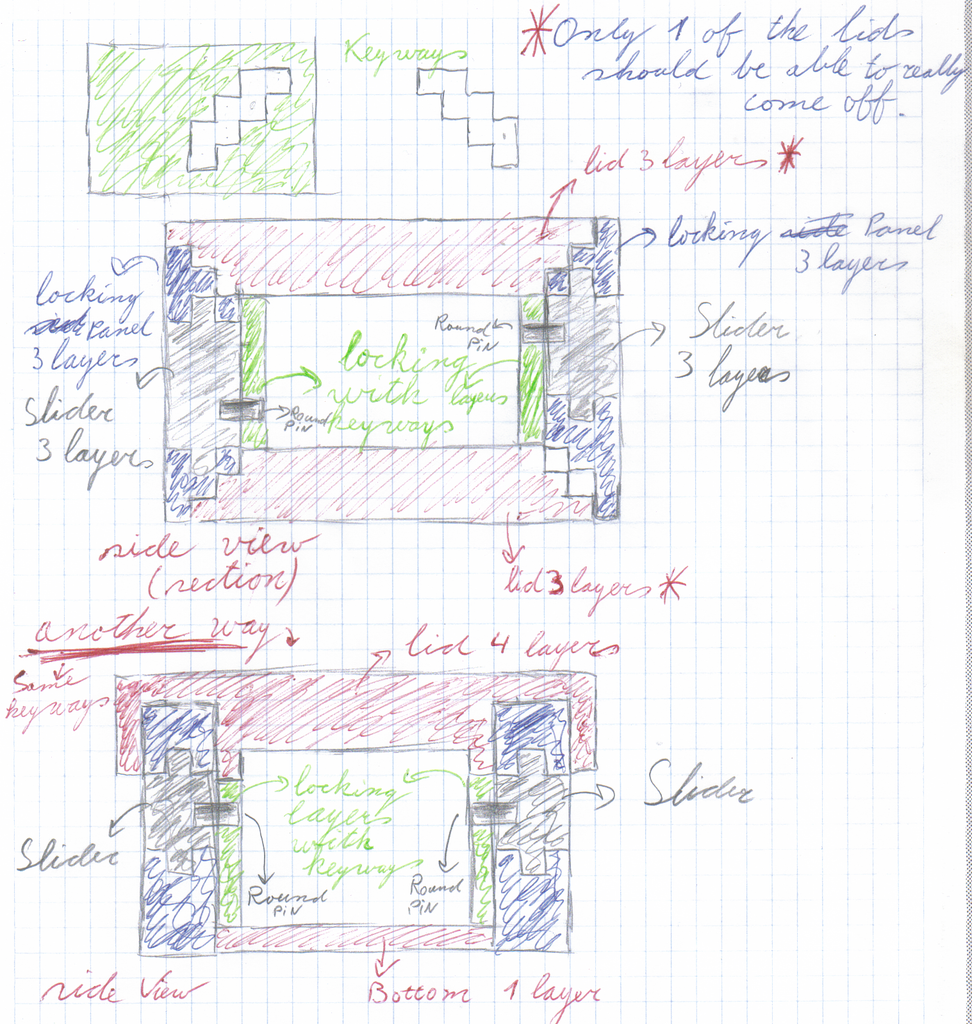 Keyways
* Only 1 of the lids
should be able to really
come off.
lid 3 layers *
locking side Panel
3 layers
locking
side Panel
3 layers
Slider
3 layers
Round
PiN
Slider
3 layers
locking
with layers
keyways
Round
PiN
side view
(section)
lid 3 layers *
another way
Same
keyways
lid 4 layers
locking
layers
with
keyways
Slider
Slider
Round
PiN
Round
PiN
side View
Bottom 1 layer